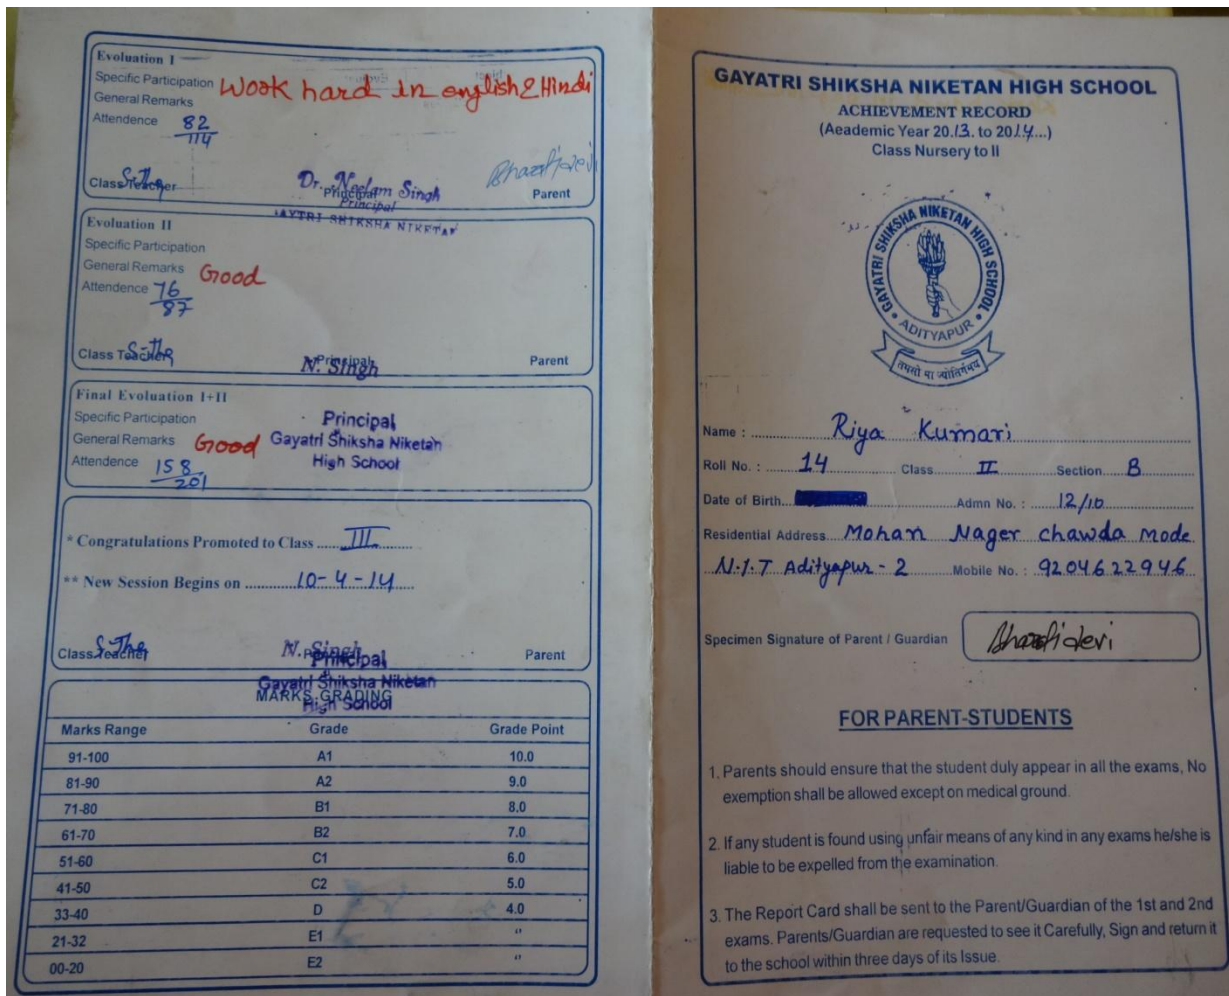 Evaluation I
Specific Participation
Work hard in english & Hindi
General Remarks
Attendence 82/114
Class Teacher
Dr. Neelam Singh
Principal
Principal
Bharti devi
Parent
GAYTRI SHIKSHA NIKETAN
Evaluation II
Specific Participation
General Remarks Good
Attendence 76/87
Class Teacher
N. Singh
Principal
Parent
Final Evaluation I+II
Specific Participation
General Remarks Good
Attendence 158/201
Principal
Gayatri Shiksha Niketan
High School
* Congratulations Promoted to Class ....III....
** New Session Begins on ....10-4-14....
Class Teacher
N. Singh
Principal
Parent
Gayatri Shiksha Niketan
High School
MARKS GRADING
Marks Range Grade Grade Point
91-100 A1 10.0
81-90 A2 9.0
71-80 B1 8.0
61-70 B2 7.0
51-60 C1 6.0
41-50 C2 5.0
33-40 D 4.0
21-32 E1 "
00-20 E2 "
GAYATRI SHIKSHA NIKETAN HIGH SCHOOL
ACHIEVEMENT RECORD
(Aeademic Year 2013. to 2014...)
Class Nursery to II
GAYATRI SHIKSHA NIKETAN HIGH SCHOOL
ADITYAPUR
तमसो मा ज्योतिर्गमय
Name : Riya Kumari
Roll No. : 14 Class II Section B
Date of Birth Admn No. : 12/10
Residential Address Mohan Nager chawda mode
N.I.T Adityapur - 2 Mobile No. : 9204622946
Specimen Signature of Parent / Guardian Bharti devi
FOR PARENT-STUDENTS
1. Parents should ensure that the student duly appear in all the exams, No
exemption shall be allowed except on medical ground.
2. If any student is found using unfair means of any kind in any exams he/she is
liable to be expelled from the examination.
3. The Report Card shall be sent to the Parent/Guardian of the 1st and 2nd
exams. Parents/Guardian are requested to see it Carefully, Sign and return it
to the school within three days of its Issue.